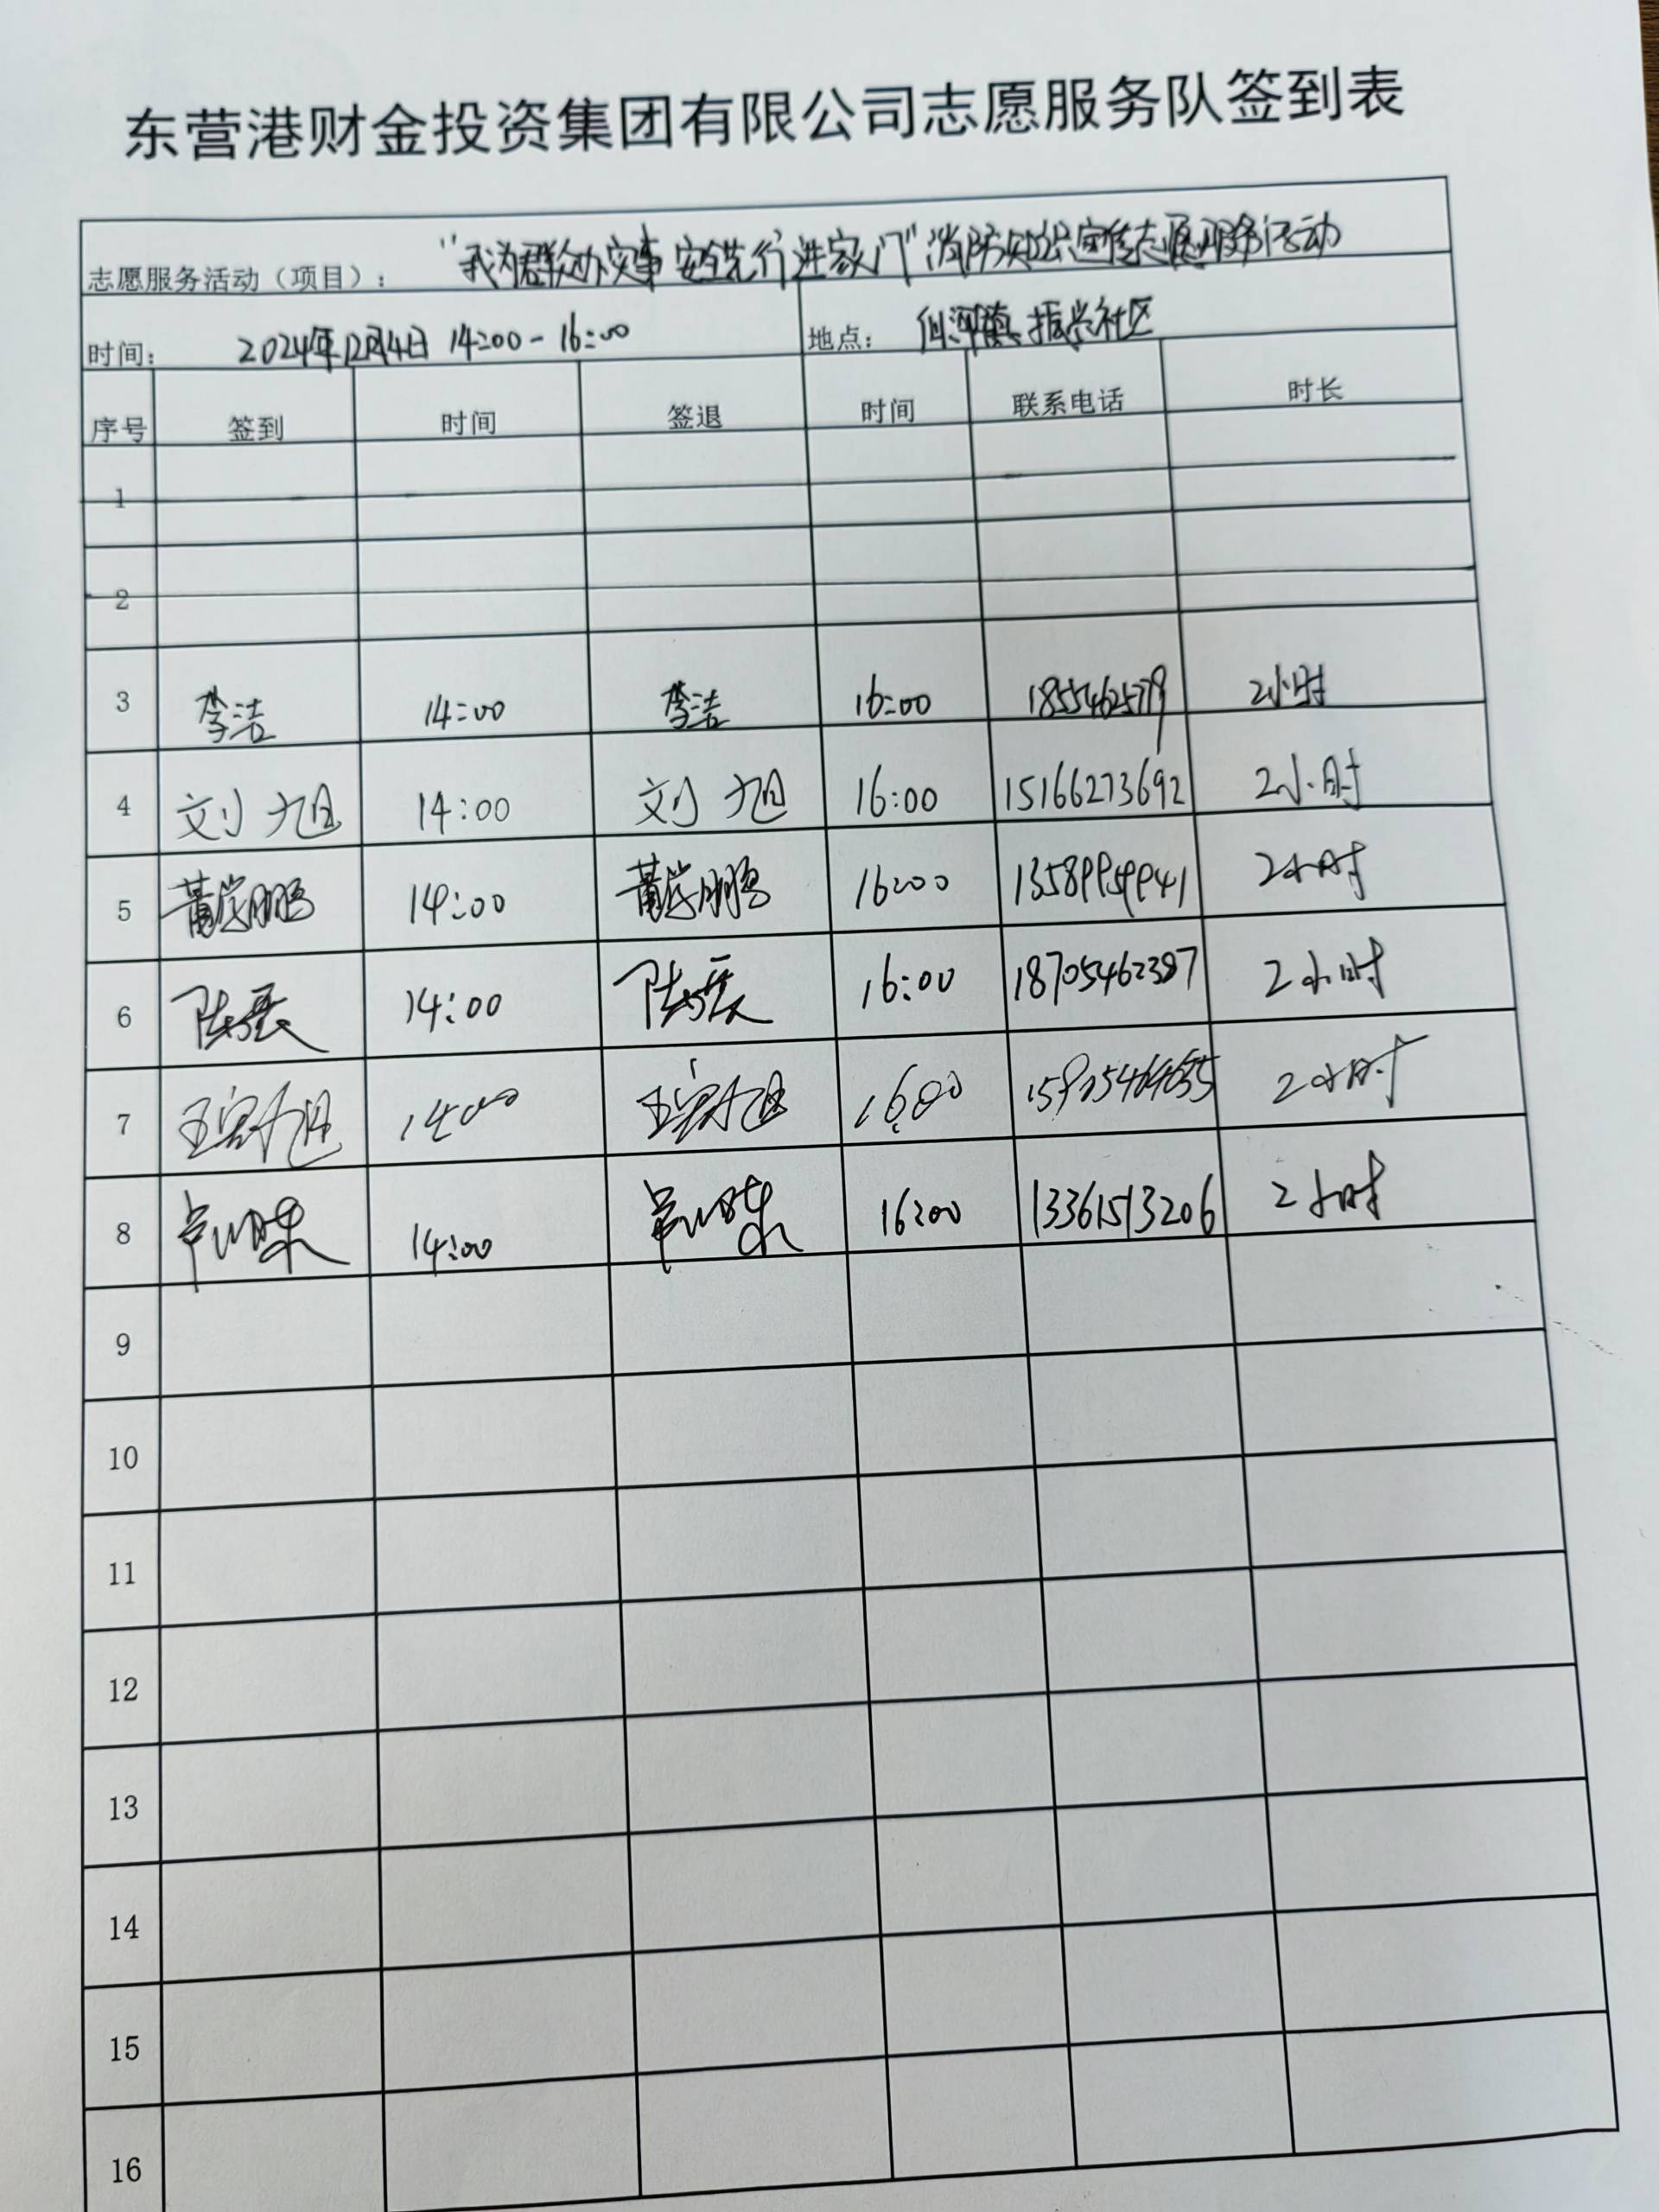 东营港财金投资集团有限公司志愿服务队签到表
志愿服务活动（项目）： “我为群众办实事 安全先行进家门”消防知识宣传志愿服务活动
时间： 2024年12月4日 14:00-16:00 地点： 仙河镇振兴社区
序号 签到 时间 签退 时间 联系电话 时长
1
2
3 李洁 14:00 李洁 16:00 2小时
4 刘旭 14:00 刘旭 16:00 15166273692 2小时
5 14:00 16:00 13589959941 2小时
6 14:00 16:00 18705462387 2小时
7 14:00 16:00 2小时
8 14:00 16:00 13361513206 2小时
9
10
11
12
13
14
15
16